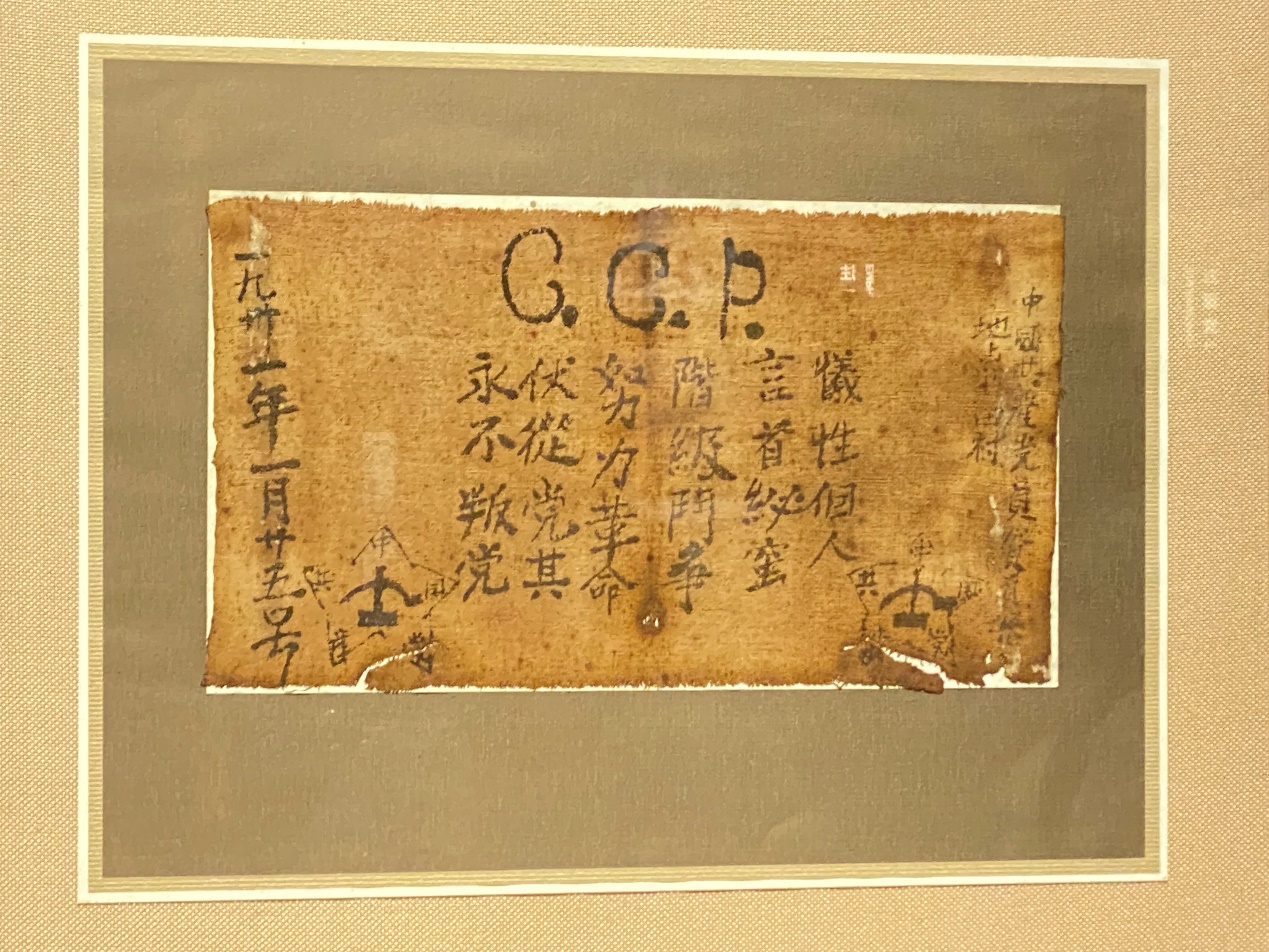 C.C.P.
中國共產党員
地点北田村
犧性個人
言首秘蜜
階級鬥争
努力革命
伏從党其
永不叛党
一九卅一年一月廿五号
中
共
國
產
党
中
共
國